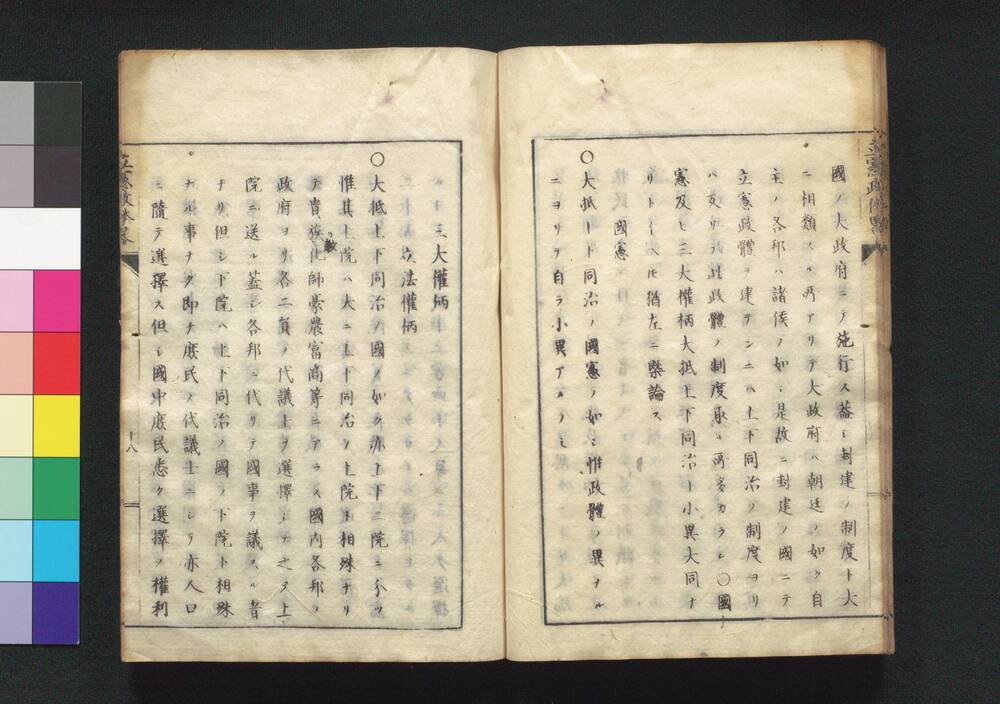 國ノ大政府ニテ施行ス蓋シ封建ノ制度ト大
ニ相類スル所アリテ大政府ハ朝廷ノ如ク自
主ノ各邦ハ諸侯ノ如シ是故ニ封建ノ國ニテ
立憲政體ヲ建テンニハ上下同治ノ制度ヨリ
ハ反リテ此政體ノ制度取ル所多カラン〇國
憲及ヒ三大權柄大抵上下同治ト小異大同ナ
リトイヘ𪜈猶左ニ槩論ス
國憲
〇大抵上下同治ノ國憲ノ如シ惟政體ノ異ナル
ニヨリテ自ラ小異アルノミ
立憲政體畧
三大權柄
立法權柄
〇大抵上下同治ノ國ノ如ク亦上下二院ニ分ツ
惟其上院ハ大ニ上下同治ノ上院ト相殊ナリ
テ貴族化師豪農富商等ニアラス國内各邦ノ
教
政府ヨリ各二員ノ代議士ヲ選擇シテ之ヲ上
院ニ送ル蓋シ各邦ニ代リテ國事ヲ議スル者
ナリ但シ下院ハ上下同治ノ國ノ下院ト相殊
ナル事ナク即チ庶民ノ代議士ニシテ亦人口
ニ隨テ選擇ス但シ國中庶民悉ク選擇ノ權利
立憲政體畧
十八